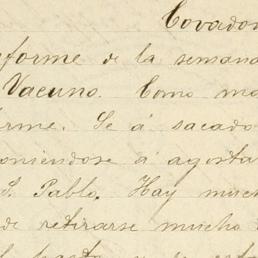 Covadon
eforme de la semana
Vacuno. Como ma
rme. Se á sacado
oniendose á agosta
S. Pablo. Hay much
de retirarse mucho